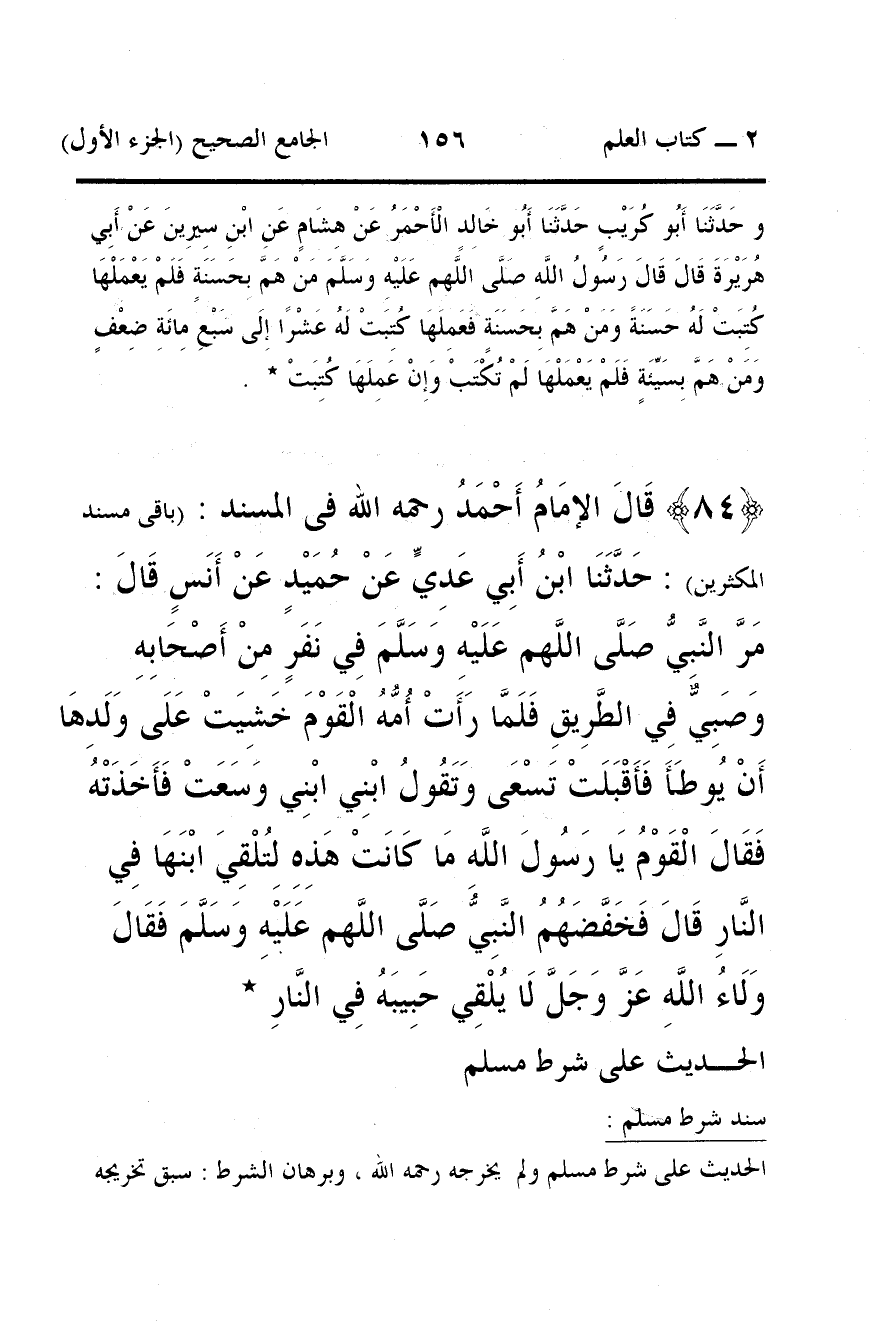 ٢ ــ كتاب العلم ١٥٦ الجامع الصحيح (الجزء الأول)
و حَدَّثَنَا أَبُو كُرَيْبٍ حَدَّثَنَا أَبُو خَالِدٍ الْأَحْمَرُ عَنْ هِشَامٍ عَنِ ابْنِ سِيرِينَ عَنْ أَبِي
هُرَيْرَةَ قَالَ قَالَ رَسُولُ اللَّهِ صَلَّى اللهم عَلَيْهِ وَسَلَّمَ مَنْ هَمَّ بِحَسَنَةٍ فَلَمْ يَعْمَلْهَا
كُتِبَتْ لَهُ حَسَنَةً وَمَنْ هَمَّ بِحَسَنَةٍ فَعَمِلَهَا كُتِبَتْ لَهُ عَشْرًا إِلَى سَبْعِ مِائَةِ ضِعْفٍ
وَمَنْ هَمَّ بِسَيِّئَةٍ فَلَمْ يَعْمَلْهَا لَمْ تُكْتَبْ وَإِنْ عَمِلَهَا كُتِبَتْ * .
﴿٨٤﴾ قَالَ الإِمَامُ أَحْمَدُ رحمه الله فى المسند : (باقى مسند
المكثرين) : حَدَّثَنَا ابْنُ أَبِي عَدِيٍّ عَنْ حُمَيْدٍ عَنْ أَنَسٍ قَالَ :
مَرَّ النَّبِيُّ صَلَّى اللهم عَلَيْهِ وَسَلَّمَ فِي نَفَرٍ مِنْ أَصْحَابِهِ
وَصَبِيٌّ فِي الطَّرِيقِ فَلَمَّا رَأَتْ أُمُّهُ الْقَوْمَ خَشِيَتْ عَلَى وَلَدِهَا
أَنْ يُوطَأَ فَأَقْبَلَتْ تَسْعَى وَتَقُولُ ابْنِي ابْنِي وَسَعَتْ فَأَخَذَتْهُ
فَقَالَ الْقَوْمُ يَا رَسُولَ اللَّهِ مَا كَانَتْ هَذِهِ لِتُلْقِيَ ابْنَهَا فِي
النَّارِ قَالَ فَخَفَّضَهُمُ النَّبِيُّ صَلَّى اللهم عَلَيْهِ وَسَلَّمَ فَقَالَ
وَلَاءُ اللَّهِ عَزَّ وَجَلَّ لَا يُلْقِي حَبِيبَهُ فِي النَّارِ *
الحـــديث على شرط مسلم
سند شرط مسلم :
الحديث على شرط مسلم ولم يخرجه رحمه الله ، وبرهان الشرط : سبق تخريجه